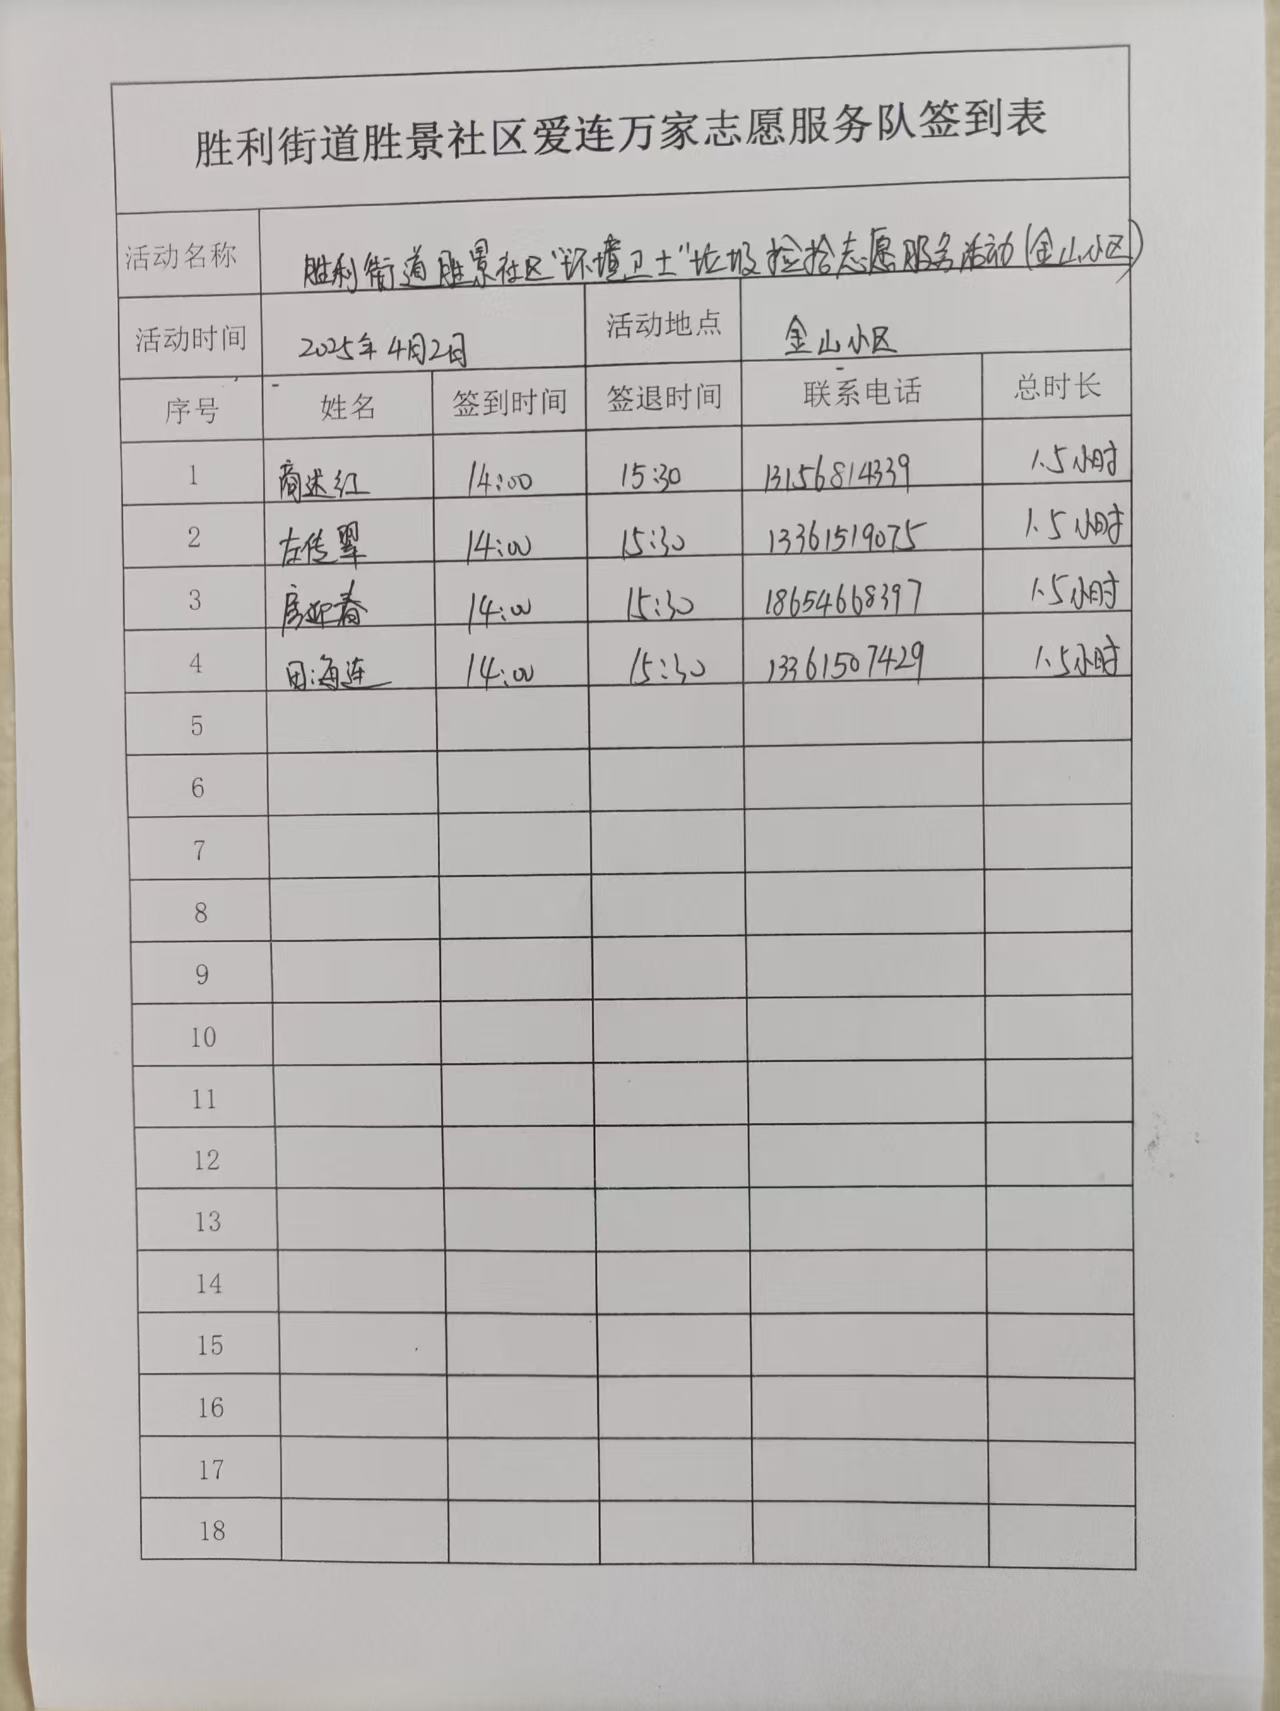 胜利街道胜景社区爱连万家志愿服务队签到表
活动名称 胜利街道胜景社区"环境卫士"垃圾捡拾志愿服务活动(金山小区)
活动时间 2025年4月2日 活动地点 金山小区
序号 姓名 签到时间 签退时间 联系电话 总时长
1 商述红 14:00 15:30 13156814339 1.5小时
2 左传翠 14:00 15:30 13361519075 1.5小时
3 房迎春 14:00 15:30 18654668397 1.5小时
4 田海连 14:00 15:30 13361507429 1.5小时
5
6
7
8
9
10
11
12
13
14
15
16
17
18